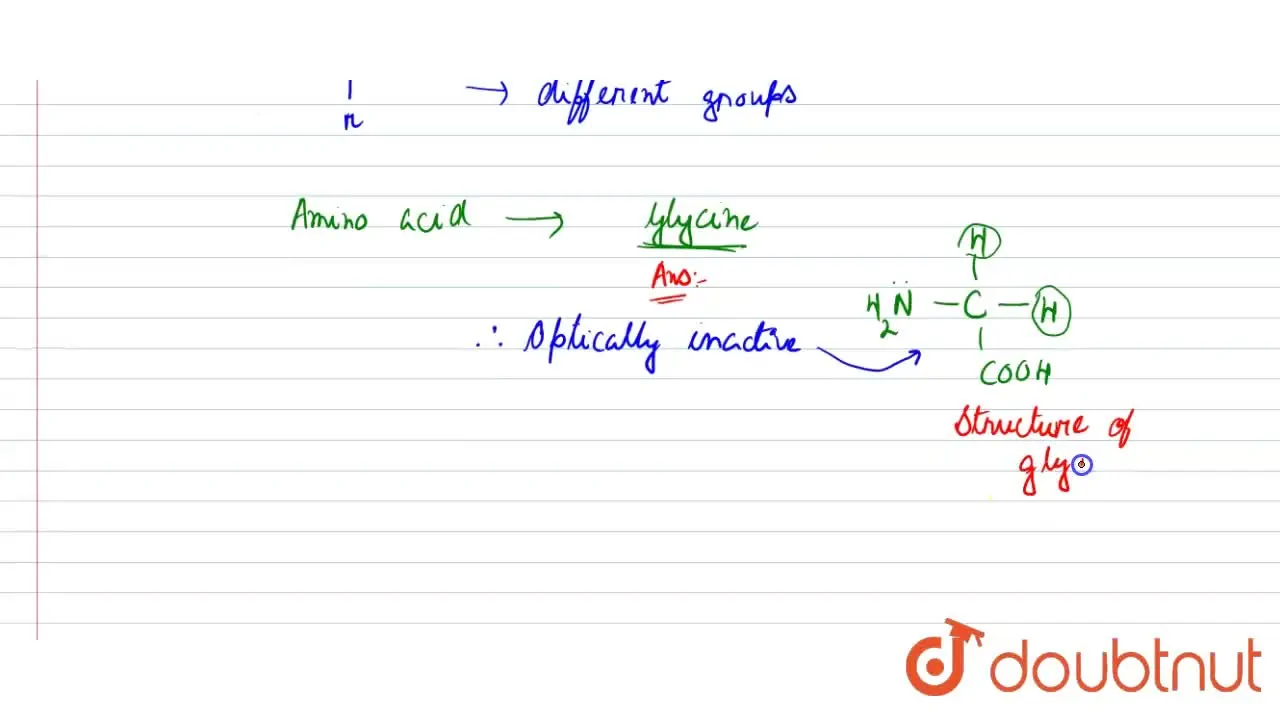 | → different groups
n
Amino acid → Glycine
Ans:-
∴ Optically inactive
H
|
H2N̈ — C — H
|
COOH
Structure of
gly
doubtnut